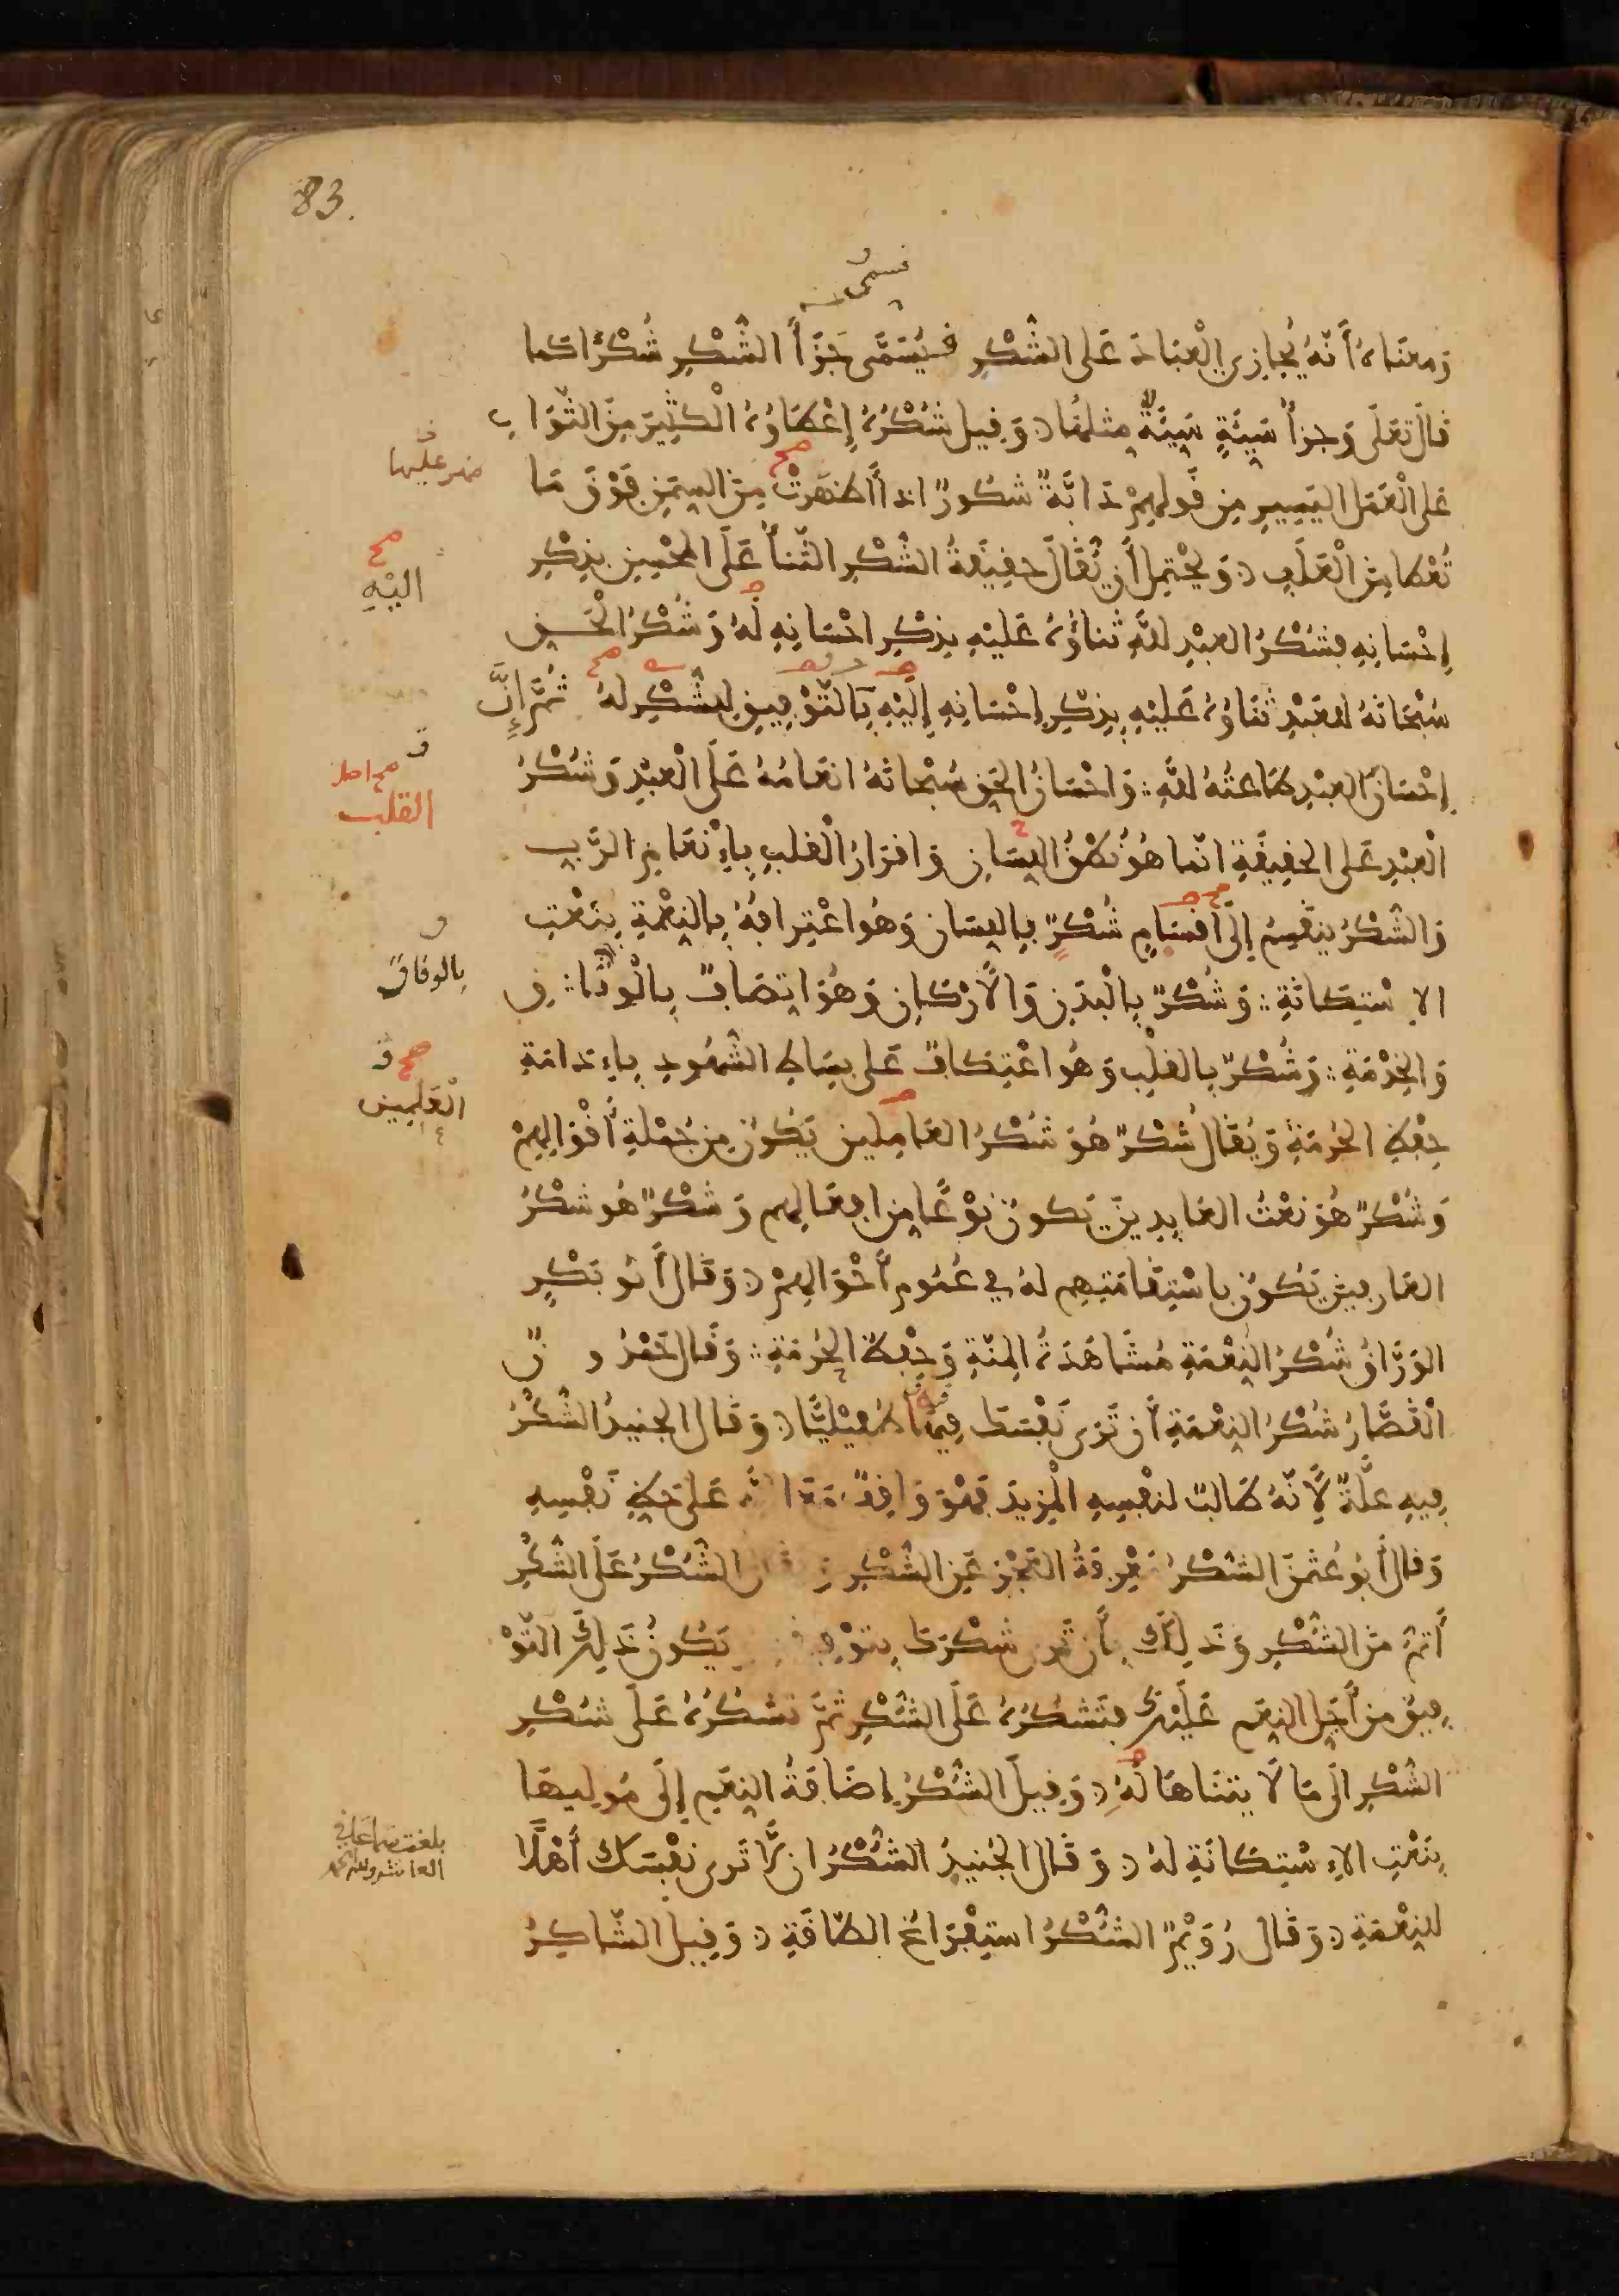 83.
فسمى
وَمعنَاهُ أَنَّهُ يُجَازِي الْعِبَادَ عَلى الشُّكْرِ فَيُسَمَّى جَزَآءُ الشُّكْرِ شُكْرًا كَما
قَالَ تعَلَى وَجزآءُ سَيِّئَةٍ سَيِّئَةٌ مِثلهَا وَقِيل شُكْرُهُ إِعْطَاؤُهُ الْكَثِيرَ مِنَ الثَّوَابِ
عَلى الْعَمَلِ اليَسِيرِ مِن قَولِهِمْ دَابَّةٌ شَكُورٌ اذا أَظهَرَتْ مِنَ السِّمَنِ فَوْقَ مَا
تُعْطا مِنَ الْعَلَفِ وَيَحْتَمِلُ أَن يُّقَالَ حَقِيقَةُ الشُّكْرِ الثَّنَآءُ عَلَى المُحْسِنِ بِذِكْرِ
إِحْسَانِهِ فَشُكْرُ العَبْدِ لِلَّهِ ثَناؤُهُ عَلَيْهِ بِذِكْرِ احْسَانِهِ لَهُ وَشُكْرُ الْحَقِ
سُبْحَانَهُ لِلعَبْدِ ثَنَاؤُهُ عَلَيْهِ بِذِكْرِ إِحْسَانِهِ إِلَيْهِ بِالتَّوْفِيقِ لِلشُّكْرِ لَهُ ثُمَّ إِنَّ
إِحْسَانَ العَبْدِ طَاعَتُهُ لِلَّهِ وَاحْسَانُ الحَقِ سُبْحَانَهُ انعَامُهُ عَلَى الْعَبْدِ وَشُكْرُ
الْعَبْدِ عَلى الحَقِيقَةِ انَّما هُوَ نُطْقُ اللِّسَانِ وَاقرَارُ الْقَلبِ بِإِنْعَامِ الرَّبِ
وَالشُّكْرُ يَنقَسِمُ إِلَى أَقسَامٍ شُكْرٌ بِاللِّسَانِ وَهُوَ اعْتِرَافُهُ بِالنِّعْمَةِ بِنَعْتِ
الاِسْتِكَانَةِ وَشُكْرٌ بِالْبَدَنِ وَالأَرْكَانِ وَهُوَ اتِّصَافٌ بِالْوِفَاقِ
وَالخِدْمَةِ وَشُكْرٌ بِالقَلْبِ وَهُوَ اعْتِكَافٌ عَلى بِسَاطِ الشُّهُودِ بِإِدَامَةِ
حِفْظِ الحُرمَةِ وَيُقَالُ شُكْرٌ هُوَ شُكْرُ العَامِلِينَ يَكُونُ مِن جُمْلَةِ أَقْوَالِهِمْ
وَشُكْرٌ هُوَ نَعْتُ العَابِدِينَ يَكونُ نَوْعًا مِن افعَالِهِم وَشُكْرٌ هُو شكْرُ
العَارِفِينَ يَكُونُ بِاسْتِقَامَتِهِم لَهُ في عُمُومِ أَحْوَالِهِمْ وَقَالَ أَبُو بَكْرٍ
الوَرَّاقُ شُكْرُ النِّعْمَةِ مُشَاهَدَةُ المِنَّةِ وَحِفْظُ الحُرمَةِ وَقَالَ حَمْدُونٌ
الْقَصَّارُ شُكْرُ النِّعْمَةِ أَن تَرَى نَفْسَكَ فِيهَا طُفَيْلِيًّا وَقَالَ الجُنَيْدُ الشُّكْرُ
فِيهِ عِلَّةٌ لأَنَّهُ طَالِبٌ لنَفْسِهِ الْمَزِيدَ فَهُوَ وَاقِفٌ مَعَ اللَّهِ عَلى حَظِّ نَفْسِهِ
وَقالَ أَبُو عُثمٰنَ الشُّكْرُ مَعْرِفَةُ العَجْزِ عَنِ الشُّكْرِ وَيُقَالُ الشُّكْرُ عَلَى الشُّكْرِ
أَتَمُّ مِنَ الشُّكْرِ وَذَلِكَ بِأَن تَرى شُكْرَكَ بِتَوْفِيقِهِ يَكُونُ ذَلِكَ التَّوْ
فِيقُ مِن أَجَلِّ النِّعَمِ عَلَيْكَ فَتَشْكُرُهُ عَلَى الشُّكْرِ ثُمَّ تَشْكُرُهُ عَلَى شُكْرِ
الشُّكْرِ الَى مَا لاَ يتَنَاهَا لَهُ وَقِيلَ الشُّكْرُ إِضَافَةُ النِّعَمِ إِلَى مُولِيهَا
بِنَعْتِ الاِسْتِكَانَةِ لَهُ وَقَالَ الجُنَيدُ الشُّكْرُ ان لَّا تَرى نَفْسَكَ أَهْلًا
لِلنِّعْمَةِ وَقَالَ رُوَيْمٌ الشُّكْرُ اسْتِفْرَاغُ الطَّاقَةِ وَقِيل الشَّاكِرُ
اليْهِ
صح اصل
القلب
بالوفاق
الْعَلَمِينَ